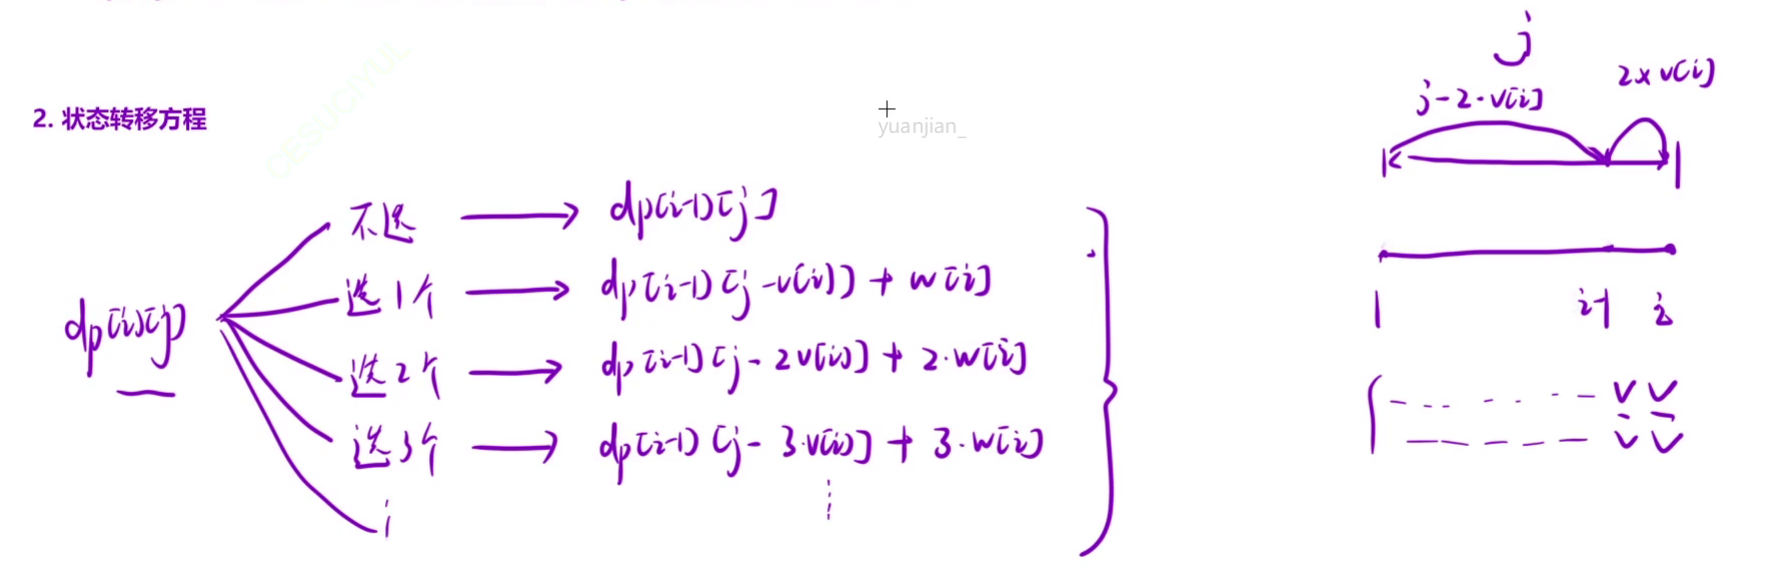 2. 状态转移方程
CESUCIYUL
yuanjian_
dp[i][j]
不选 → dp[i-1][j]
选1个 → dp[i-1][j-v[i]] + w[i]
选2个 → dp[i-1][j-2v[i]] + 2·w[i]
选3个 → dp[i-1][j-3·v[i]] + 3·w[i]
j
j-2·v[i] 2×v[i]
1 i-1 i